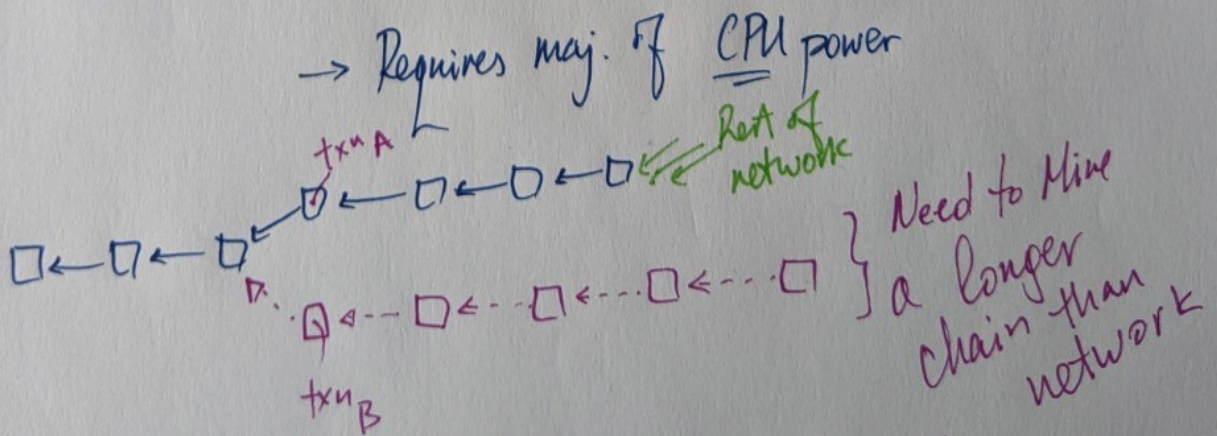 → Requires maj. of CPU power
txn A
Rest of
network
Need to Mine
a longer
chain than
network
txn B